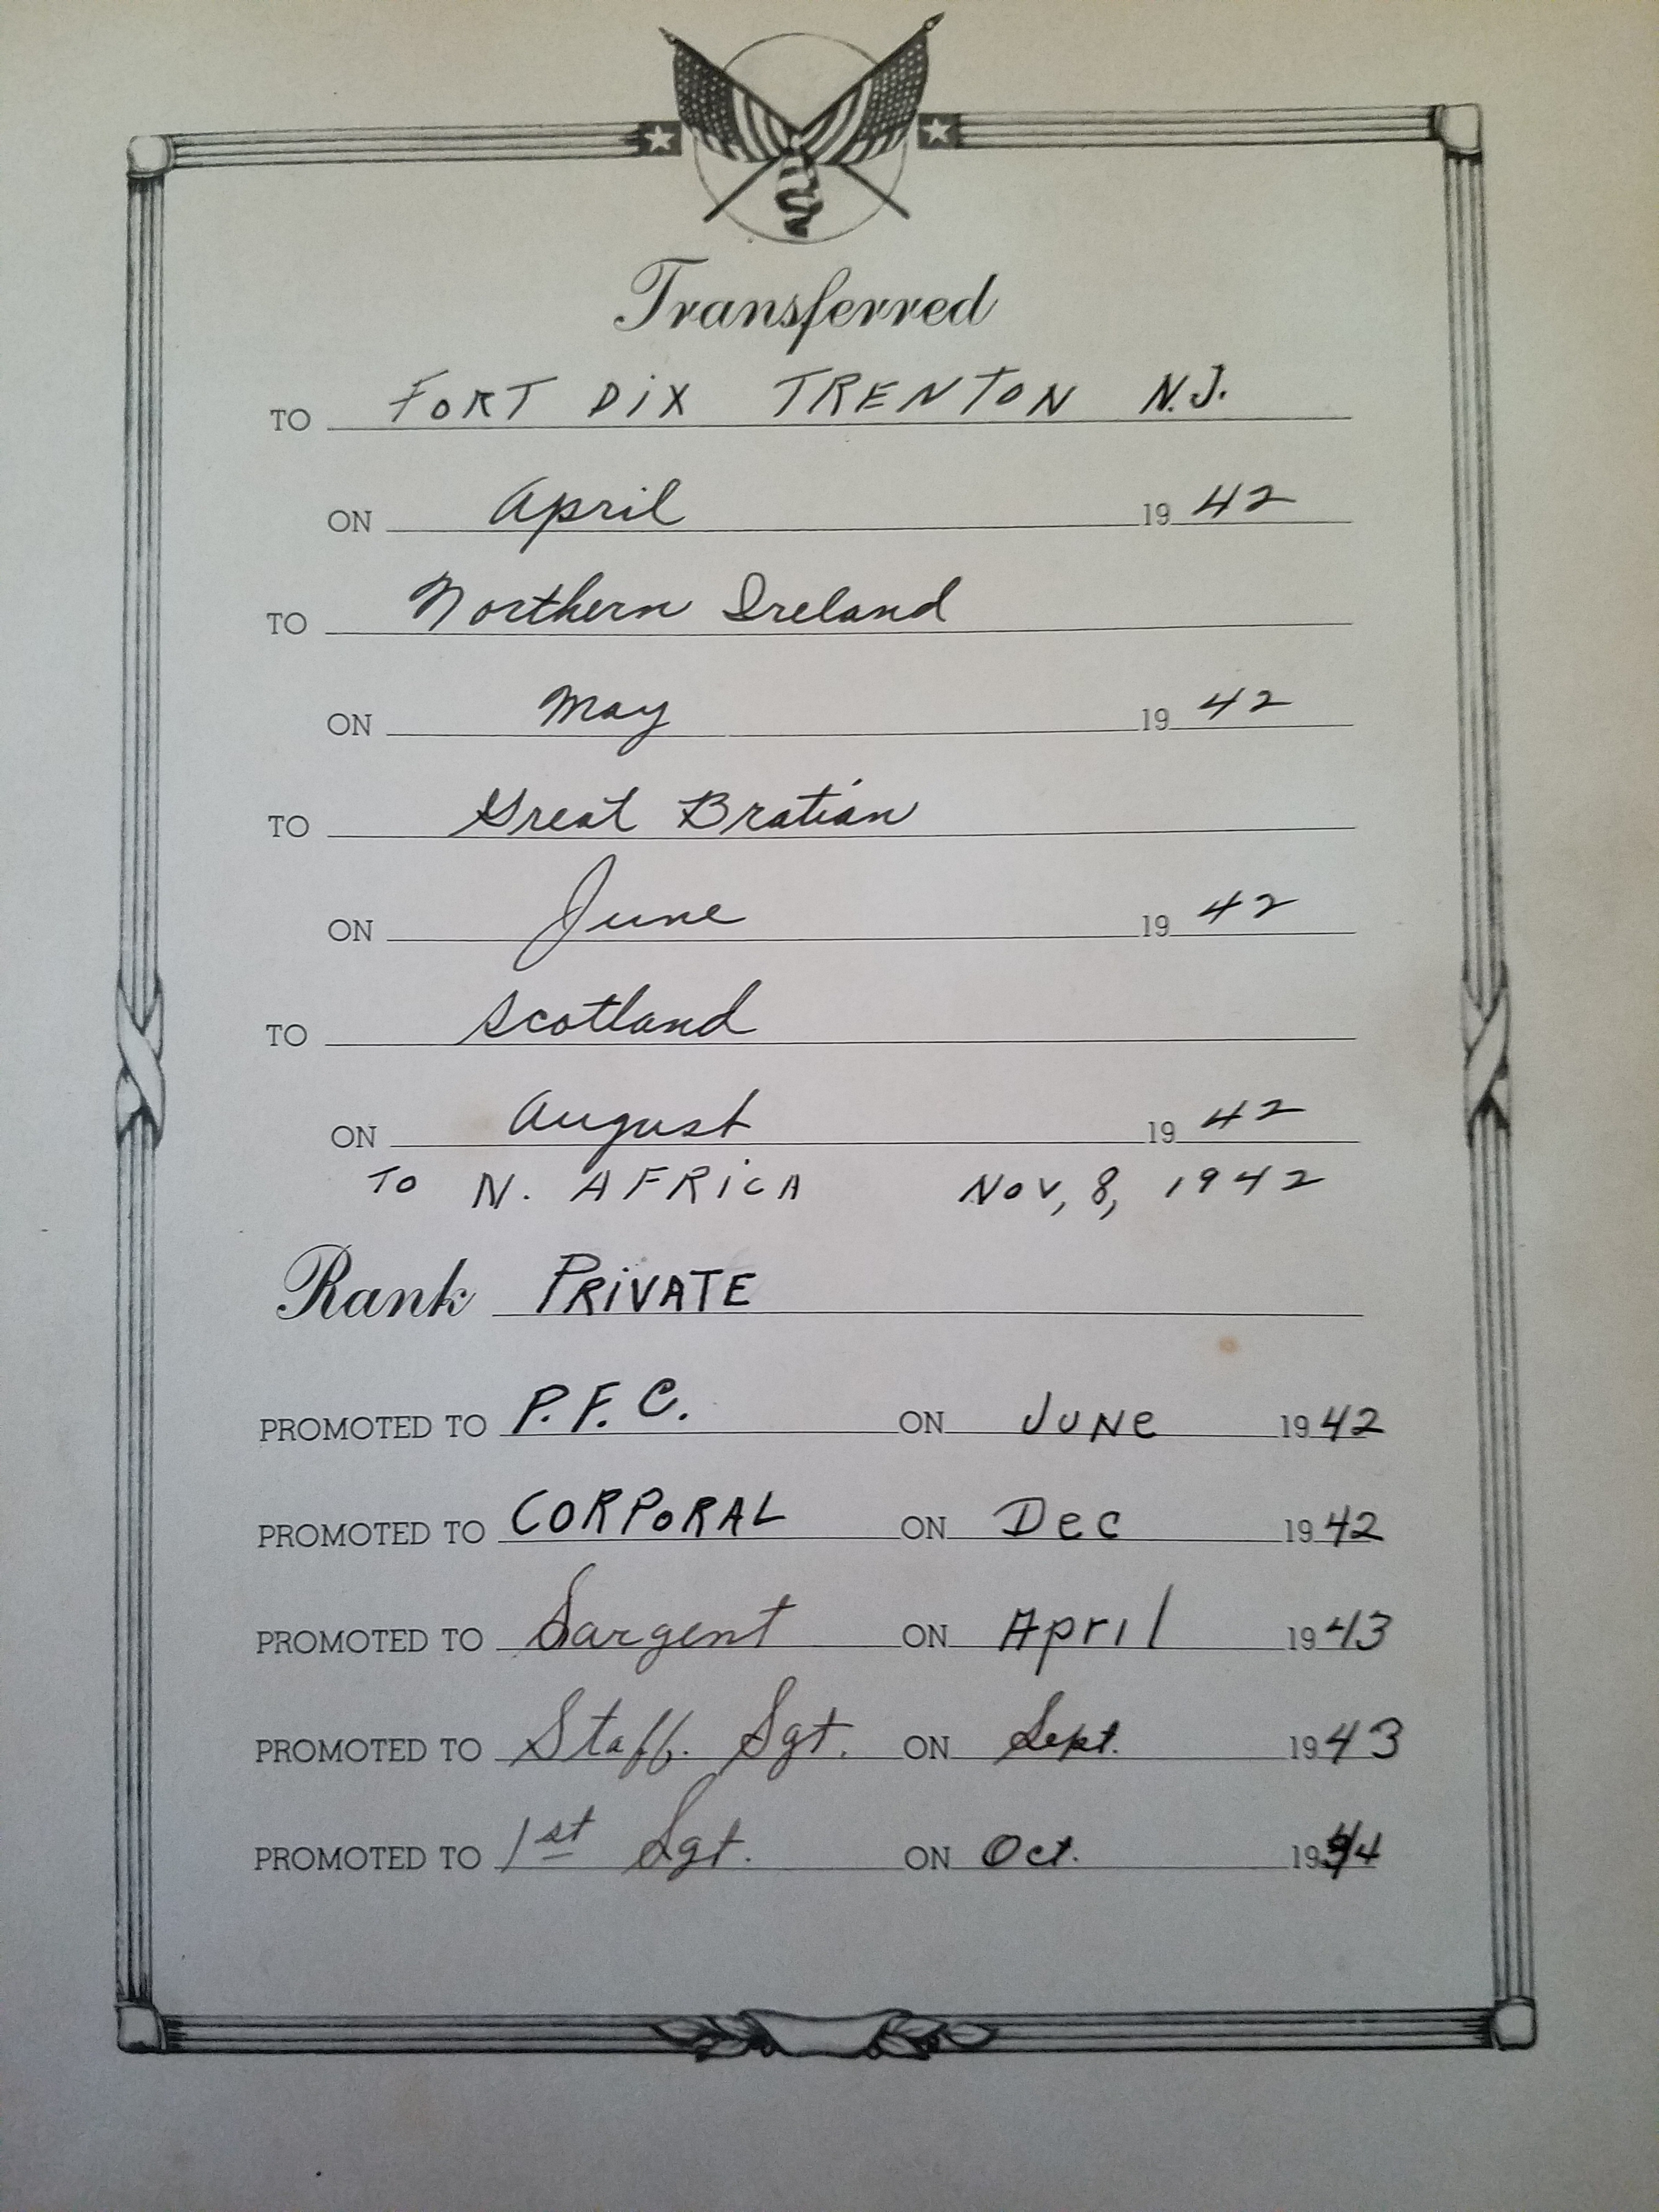 Transferred
TO FORT DIX TRENTON N.J.
ON April 1942
TO Northern Ireland
ON May 1942
TO Great Bratian
ON June 1942
TO Scotland
ON August 1942
TO N. AFRICA NOV, 8, 1942
Rank PRIVATE
PROMOTED TO P.F.C. ON JUNE 1942
PROMOTED TO CORPORAL ON DEC 1942
PROMOTED TO Sargent ON April 1943
PROMOTED TO Staff. Sgt. ON Sept. 1943
PROMOTED TO 1st Sgt. ON Oct. 1944